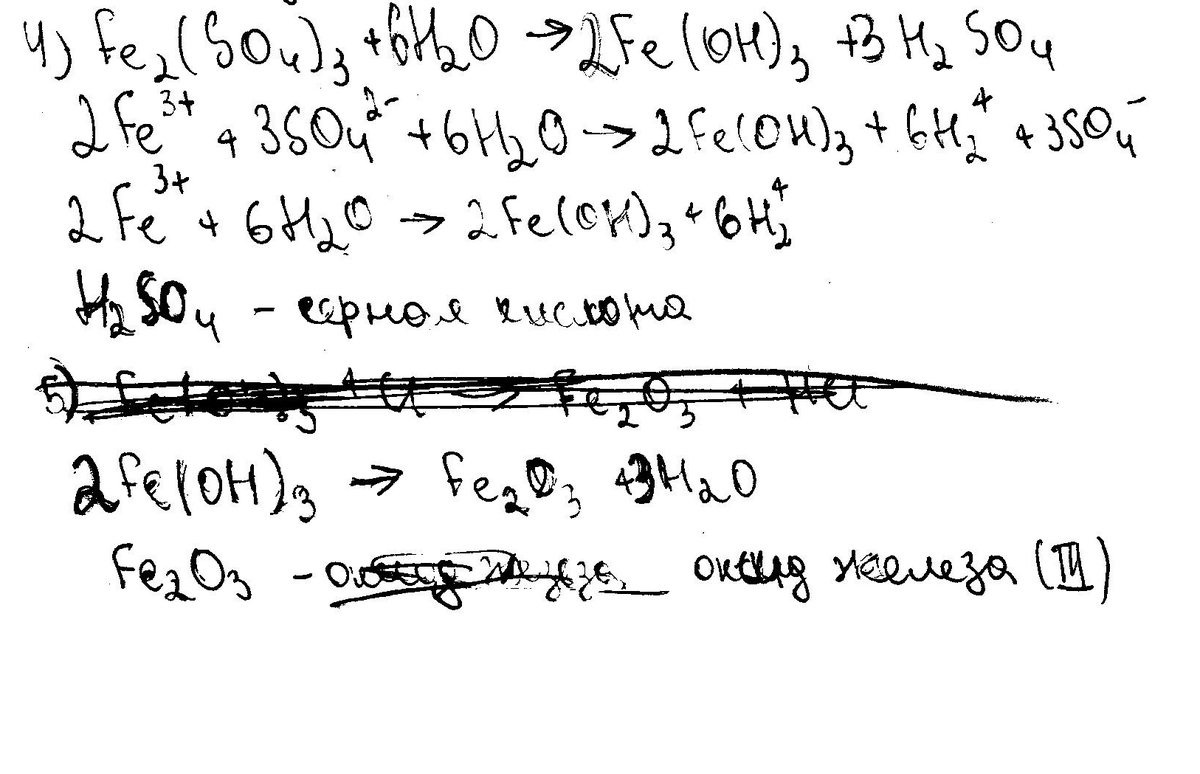 4) Fe₂(SO₄)₃ + 6H₂O → 2Fe(OH)₃ + 3H₂SO₄
2Fe³⁺ + 3SO₄²⁻ + 6H₂O → 2Fe(OH)₃ + 6H₂⁺ + 3SO₄⁻
2Fe³⁺ + 6H₂O → 2Fe(OH)₃ + 6H₂⁺
H₂SO₄ - серная кислота
5)
2Fe(OH)₃ → Fe₂O₃ + 3H₂O
Fe₂O₃ - оксид железа оксид железа (III)